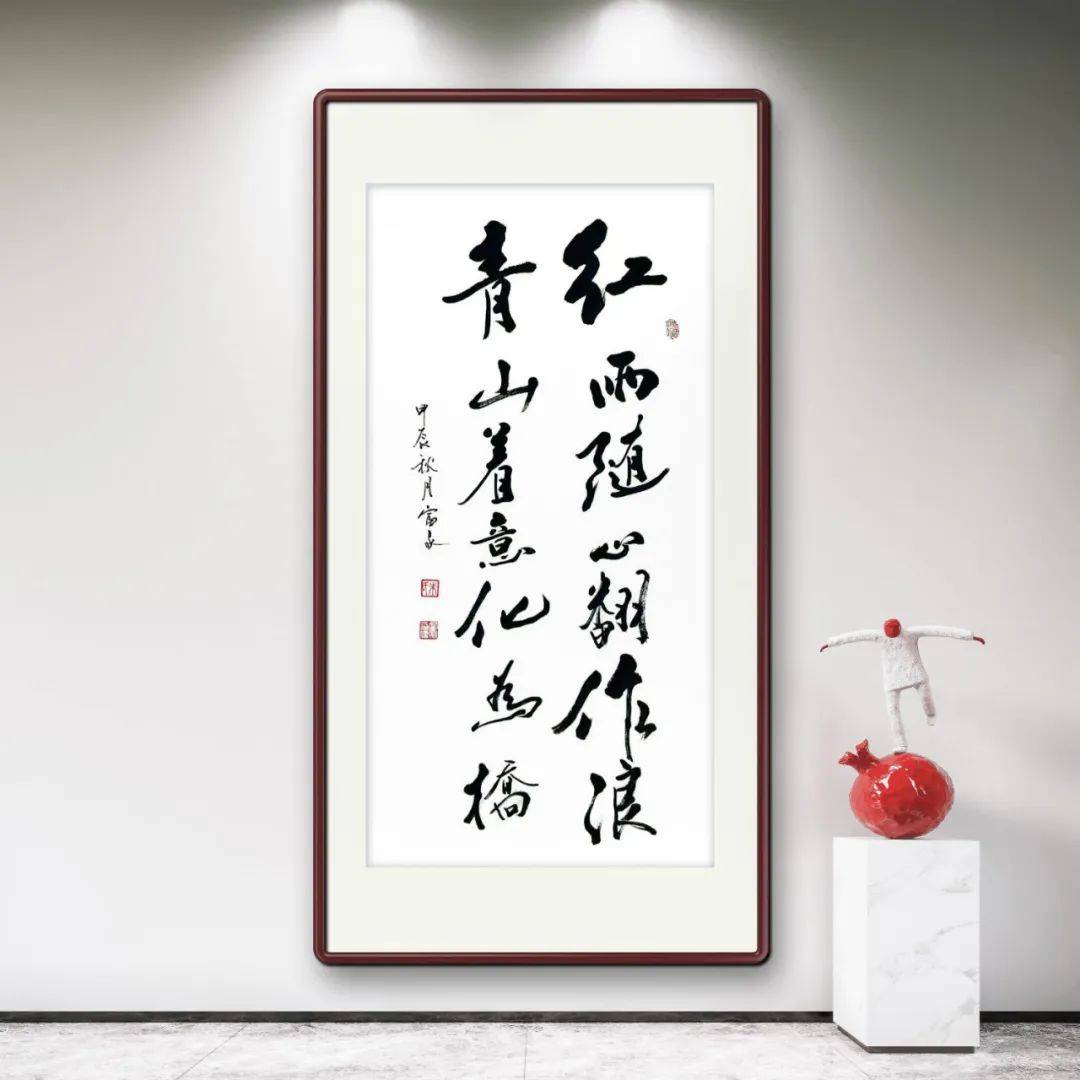 红雨随心翻作浪
青山着意化为橋
甲辰秋月富